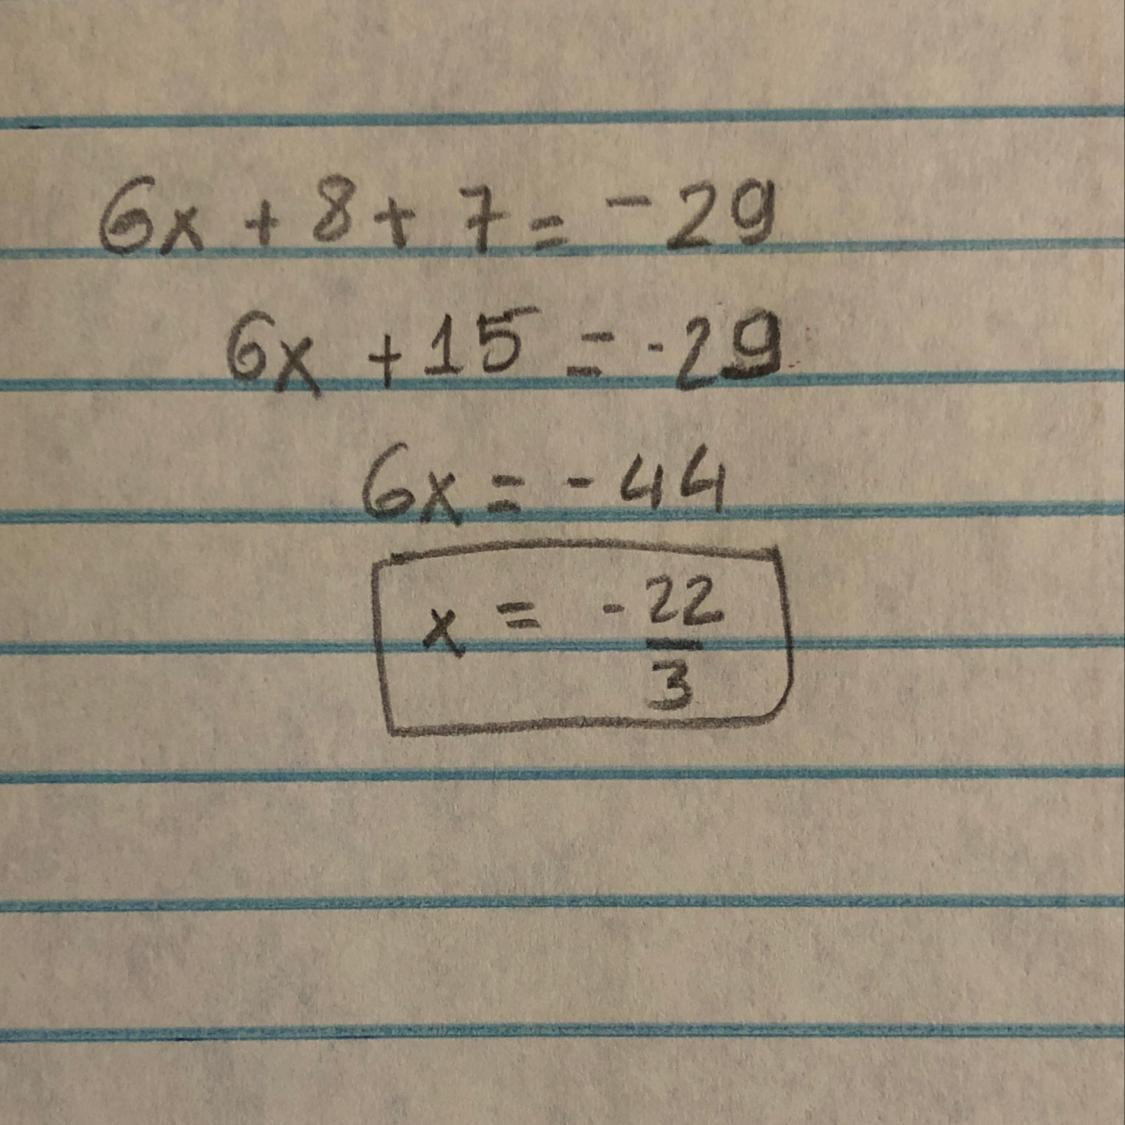 6x + 8 + 7 = -29
6x + 15 = -29
6x = -44
x = -22/3